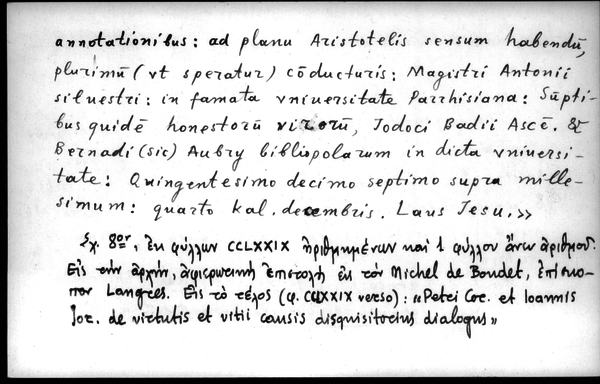 annotationibus: ad planu Aristotelis sensum habendū,
plurimū (vt speratur) cōducturis: Magistri Antonii
siluestri: in famata vniuersitate Parrhisiana: Sūpti-
bus quidē honestorū virorū, Jodoci Badii Ascē. &
Bernadi (sic) Aubry bibliopolarum in dicta vniuersi-
tate: Quingentesimo decimo septimo supra mille-
simum: quarto kal. decembris. Laus Iesu.»
Σχ. 8ον, ἐκ φύλλων CCLXXIX ἠριθμημένων καὶ 1 φύλλου ἄνευ ἀριθμοῦ.
Εἰς τὴν ἀρχήν, ἀφιερωτικὴ ἐπιστολὴ εἰς τὸν Michel de Boudet, ἐπίσκο-
πον Langres. Εἰς τὸ τέλος (φ. CCLXXIX verso): «Petri Coc. et Ioannis
Joc. de virtutis et vitii causis disquisitorius dialogus»